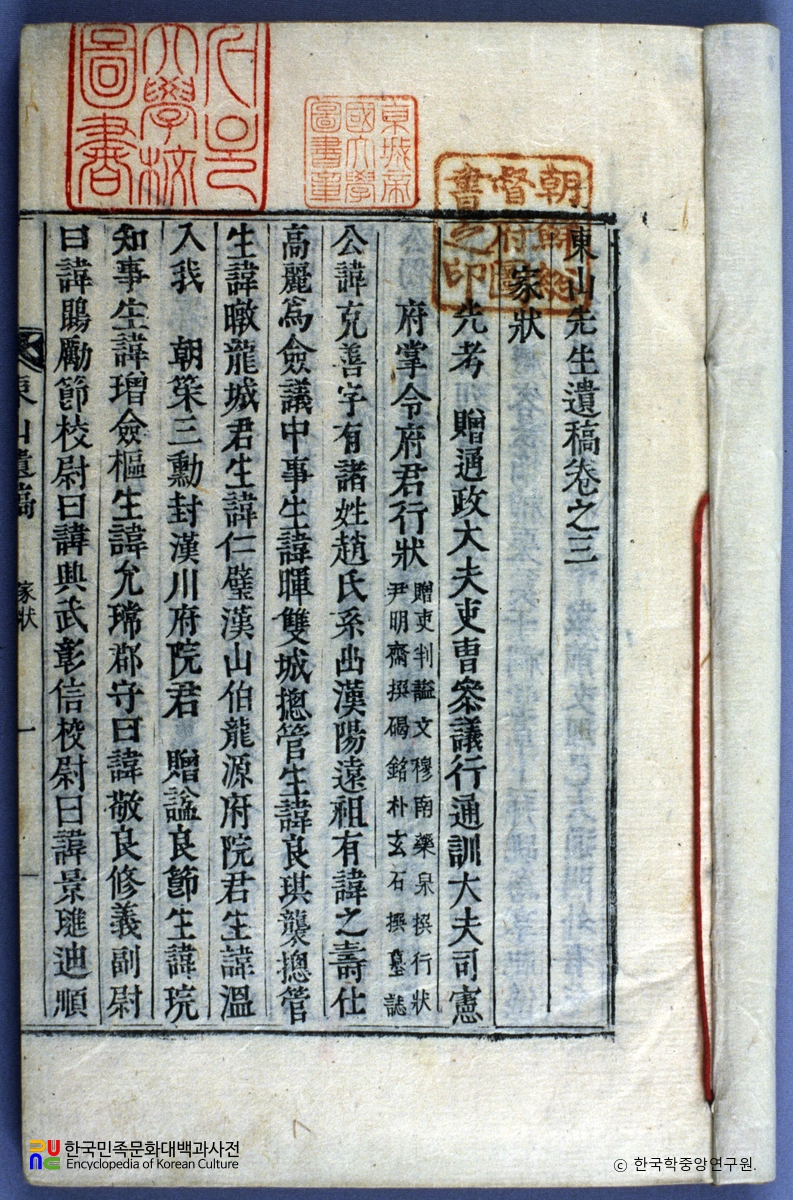 東山先生遺稿卷之三
家狀
先考 贈通政大夫吏曹參議行通訓大夫司憲
府掌令府君行狀
贈吏判謚文穆南藥泉撰行狀
尹明齋撰碣銘朴玄石撰墓誌
公諱克善字有諸姓趙氏系出漢陽遠祖有諱之壽仕
高麗爲僉議中事生諱暉雙城摠管生諱良琪襲摠管
生諱暾龍城君生諱仁璧漢山伯龍源府院君生諱溫
入我 朝策三勳封漢川府院君 贈諡良節生諱琓
知事生諱璔僉樞生諱允璫郡守曰諱敬良修義副尉
曰諱鵾勵節校尉曰諱興武彰信校尉曰諱景璡迪順
東山遺稿 家狀 一
朝鮮總
督府圖
書之印
京城帝
國大學
圖書章
大學校
圖書
한국민족문화대백과사전
Encyclopedia of Korean Culture
ⓒ 한국학중앙연구원.